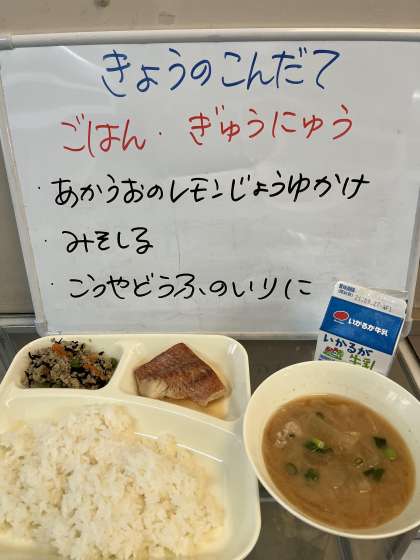 きょうのこんだて
ごはん・ぎゅうにゅう
・あかうおのレモンじょうゆかけ
・みそしる
・こうやどうふのいりに
いかるが牛乳
いかるが
牛乳